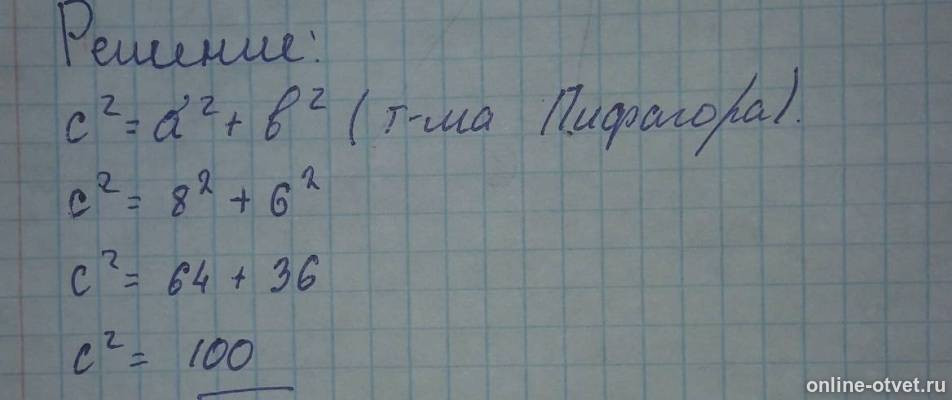 Решение:
c² = a² + b² (т-ма Пифагора).
c² = 8² + 6²
c² = 64 + 36
c² = 100
online-otvet.ru